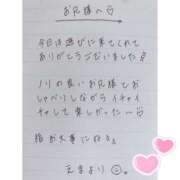 お兄様へ♡
今日は遊びに来てくれて
ありがとうございました
ノリの良いお兄様でお
しゃべりしながらイチャイ
チャして楽しかった〜♡
指が大事にね
より